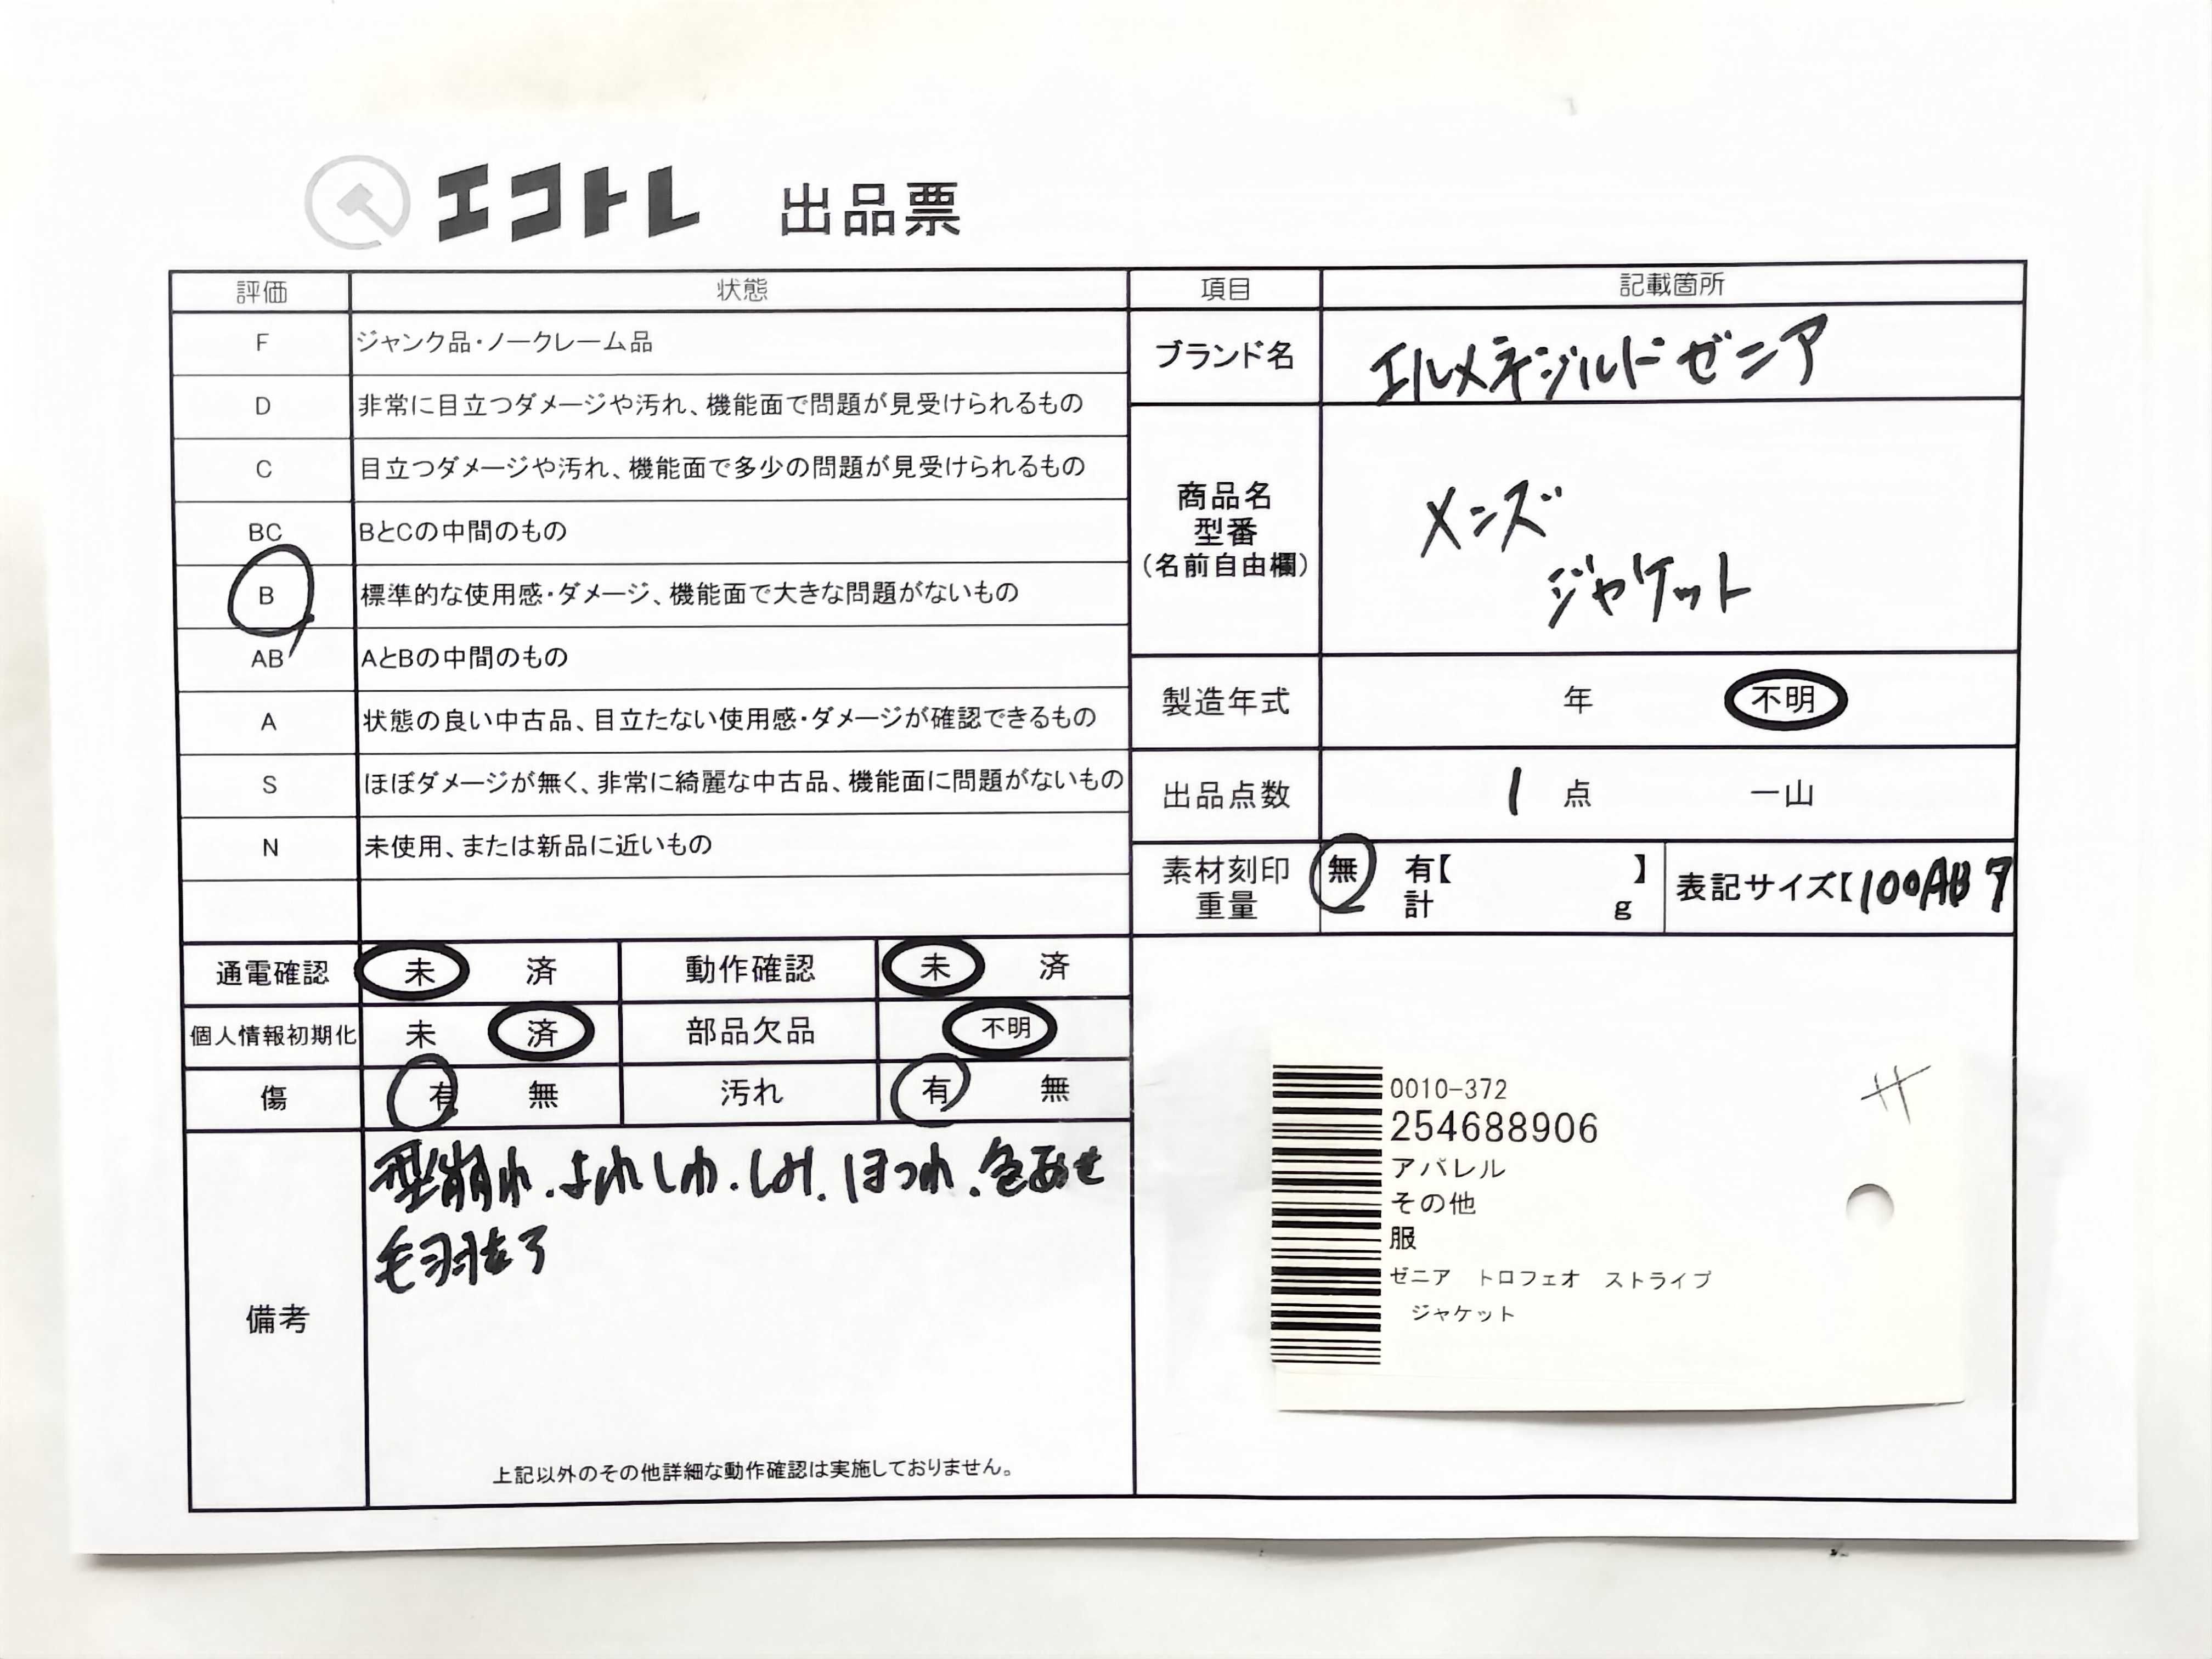 エコトレ 出品票
評価 状態 項目 記載箇所
F ジャンク品・ノークレーム品
D 非常に目立つダメージや汚れ、機能面で問題が見受けられるもの
C 目立つダメージや汚れ、機能面で多少の問題が見受けられるもの
BC BとCの中間のもの
B 標準的な使用感・ダメージ、機能面で大きな問題がないもの
AB AとBの中間のもの
A 状態の良い中古品、目立たない使用感・ダメージが確認できるもの
S ほぼダメージが無く、非常に綺麗な中古品、機能面に問題がないもの
N 未使用、または新品に近いもの
ブランド名 エルメネジルドゼニア
商品名
型番
(名前自由欄)
メンズ
ジャケット
製造年式 年 不明
出品点数 1 点 一山
素材刻印
重量
無 有【 】
計 g
表記サイズ【100AB7
通電確認 未 済 動作確認 未 済
個人情報初期化 未 済 部品欠品 不明
傷 有 無 汚れ 有 無
備考
型崩れ.よれしわ.しみ.ほつれ.色あせ
上記以外のその他詳細な動作確認は実施しておりません。
0010-372
254688906
アパレル
その他
服
ゼニア トロフェオ ストライプ
ジャケット